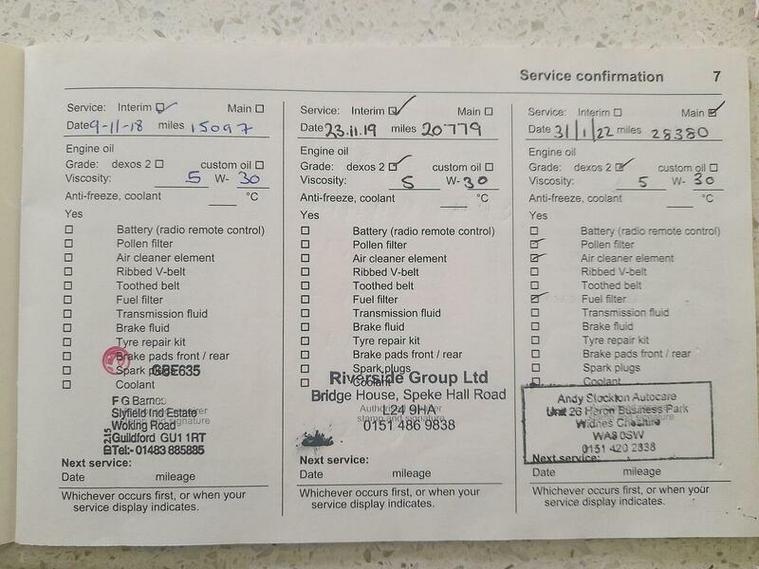 Service confirmation 7
Service: Interim Main
Date 9-11-18 miles 15097
Engine oil
Grade: dexos 2 custom oil
Viscosity: 5 W- 30
Anti-freeze, coolant °C
Yes
Battery (radio remote control)
Pollen filter
Air cleaner element
Ribbed V-belt
Toothed belt
Fuel filter
Transmission fluid
Brake fluid
Tyre repair kit
Brake pads front / rear
Spark GBE635
Coolant
F G Barnes
Slyfield Ind Estate
Woking Road
Guildford GU1 1RT
Tel:- 01483 885885
Next service:
Date mileage
Whichever occurs first, or when your
service display indicates.
Service: Interim Main
Date 23.11.19 miles 20779
Engine oil
Grade: dexos 2 custom oil
Viscosity: 5 W- 30
Anti-freeze, coolant °C
Yes
Battery (radio remote control)
Pollen filter
Air cleaner element
Ribbed V-belt
Toothed belt
Fuel filter
Transmission fluid
Brake fluid
Tyre repair kit
Brake pads front / rear
Spark plugs
Coolant
Riverside Group Ltd
Bridge House, Speke Hall Road
L24 9HA
stamp and signature
0151 486 9838
Next service:
Date mileage
Whichever occurs first, or when your
service display indicates.
Service: Interim Main
Date 31/1/22 miles 28380
Engine oil
Grade: dexos 2 custom oil
Viscosity: 5 W- 30
Anti-freeze, coolant °C
Yes
Battery (radio remote control)
Pollen filter
Air cleaner element
Ribbed V-belt
Toothed belt
Fuel filter
Transmission fluid
Brake fluid
Tyre repair kit
Brake pads front / rear
Spark plugs
Coolant
Andy Stockton Autocare
Unit 26 Heron Business Park
Widnes Cheshire
WA8 0SW
0151 420 2338
Next service:
Date mileage
Whichever occurs first, or when your
service display indicates.